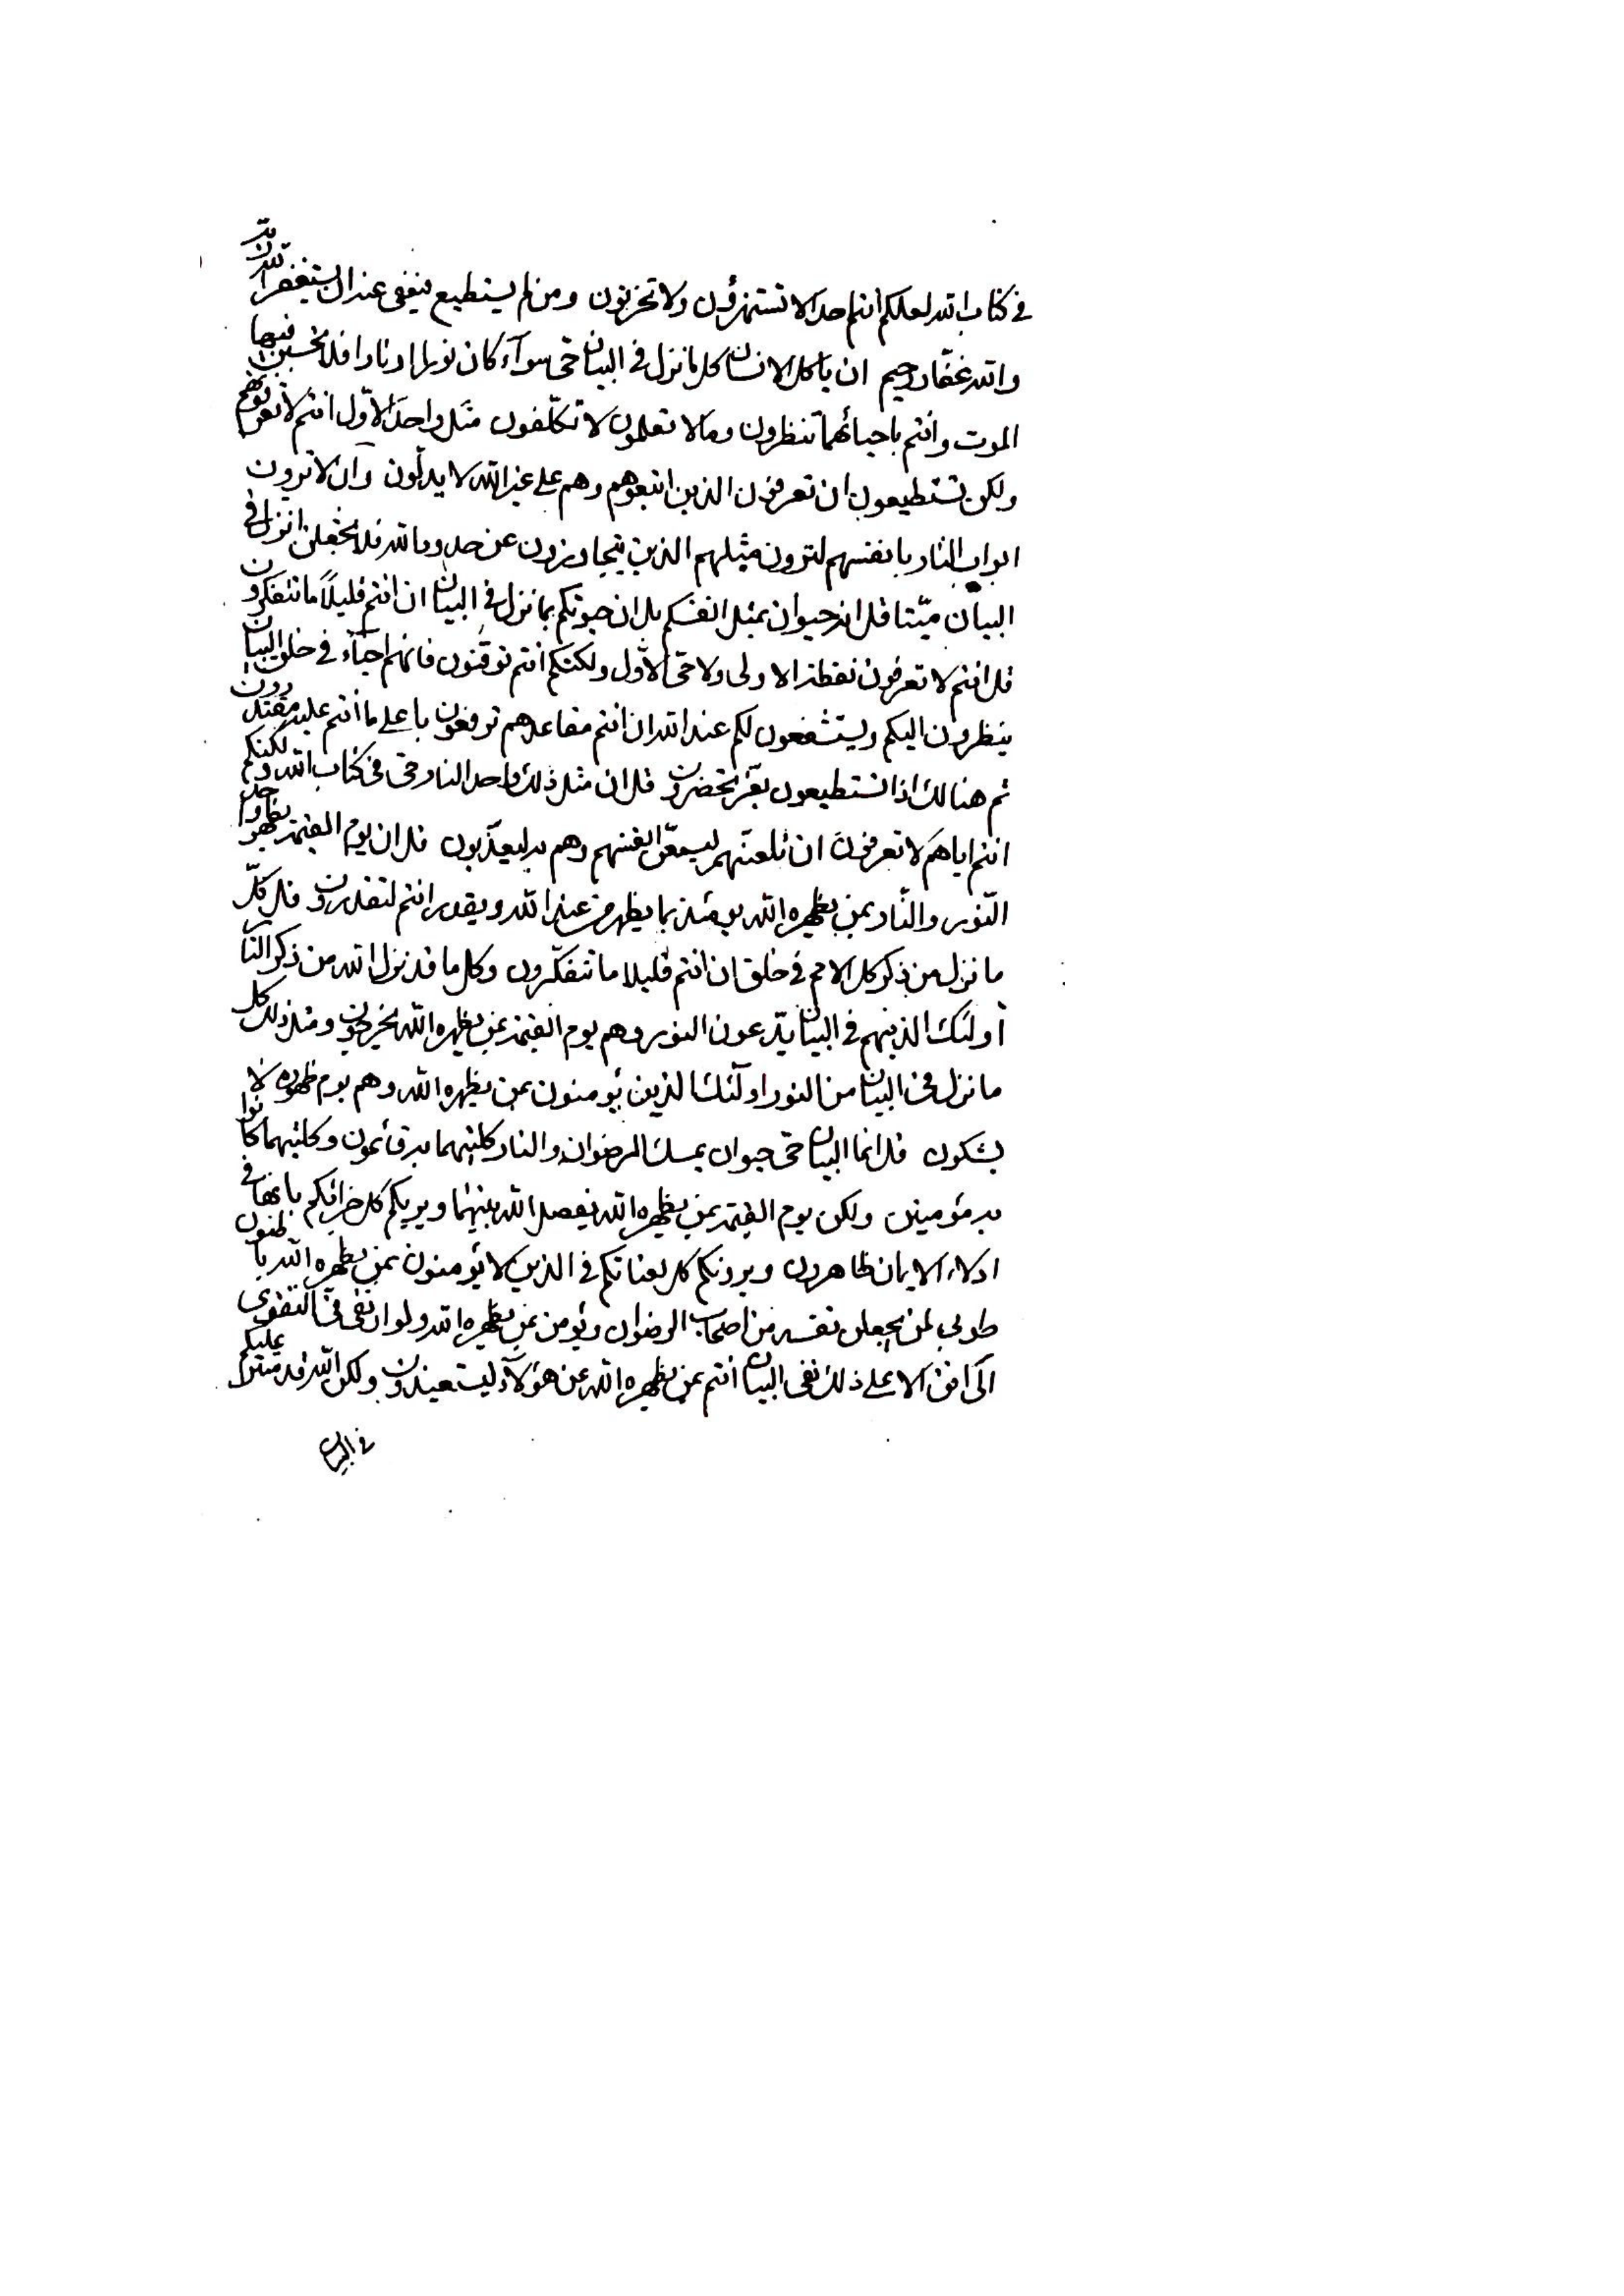 في كتاب الله لعلكم انتم احدا لا تستهزؤن ولا تحزنون ومن لم يستطيع فيعفى عنه ان يستغفر الله ان الله
والله غفار رحيم ان يا كل الانسان كل ما نزل في البيان حى سوآء كان نورا او نارا فلا تحسبن فيها
الموت وانتم باحيائهما تنظرون وما لا تعلمون لا تكلفون مثل واحد الاول انتم لا تعرفونهم
ولكن تستطيعون ان تعرفون الذين اتبعوهم وهم على غير الله لا يدلون وان لا ترون
ابواب النار بانفسهم لترون مثلهم الذين يتجاوزون عن حدود الله فلا تجعلن ما نزل في
البيان ميتا قل انه حيوان بمثل انفسكم بل ان حيوتكم بما نزل في البيان ان انتم قليلا ما تتفكرون
قل انتم لا تعرفون نقطة الاولى ولا حى الاول ولكنكم انتم توقنون فانهم احياء في خلق البيان
ينظرون اليكم ويستشفعون لكم عند الله ان انتم مقاعدهم ترفعون باعلى ما انتم عليه مقتدرون
ثم هنالك اذا تستطيعون تحضرون قل ان مثل ذلك واحد النار حى في كتاب الله ولكنكم
انتم اياهم لا تعرفون ان تلعنهم ليسمعن انفسهم وهم به ليعذبون قل ان يوم القيمة يظهر واحد
النور والنار بمن يظهره الله يومئذ بما يظهر من عند الله ويقدر انتم لتقدرون قل كل
ما نزل من ذكر كل الامم في خلق ان انتم قليلا ما تتفكرون وكل ما قد نزل الله من ذكر النار
أولئك الذينهم في البيان يدعون النور وهم يوم القيمة بمن يظهره الله يخرجون ومثل ذلك كل
ما نزل في البيان من النور اولئك الذين يؤمنون بمن يظهره الله وهم يوم ظهوره لا
يشكون قل انما البيان حى حيوان يمسك الرضوان والنار كلتيهما به قائمون وكلتيهما كانوا
به مؤمنين ولكن يوم القيمة بمن يظهره الله يفصل الله بينهما ويريكم كل خزائنكم بانها في
ادلاء الايمان ظاهرون ويرونكم كل لعناتكم في الذين لا يؤمنون بمن يظهره الله باطنون
طوبى لمن يجعل نفسه من اصحاب الرضوان ويؤمن بمن يظهره الله ولو ان تقى في التقوى
الى افق الاعلى ذلك تقى البيان انتم بمن يظهره الله عن هؤلآء ليستعيذون ولكن الله قد ستر عليكم
في البيان